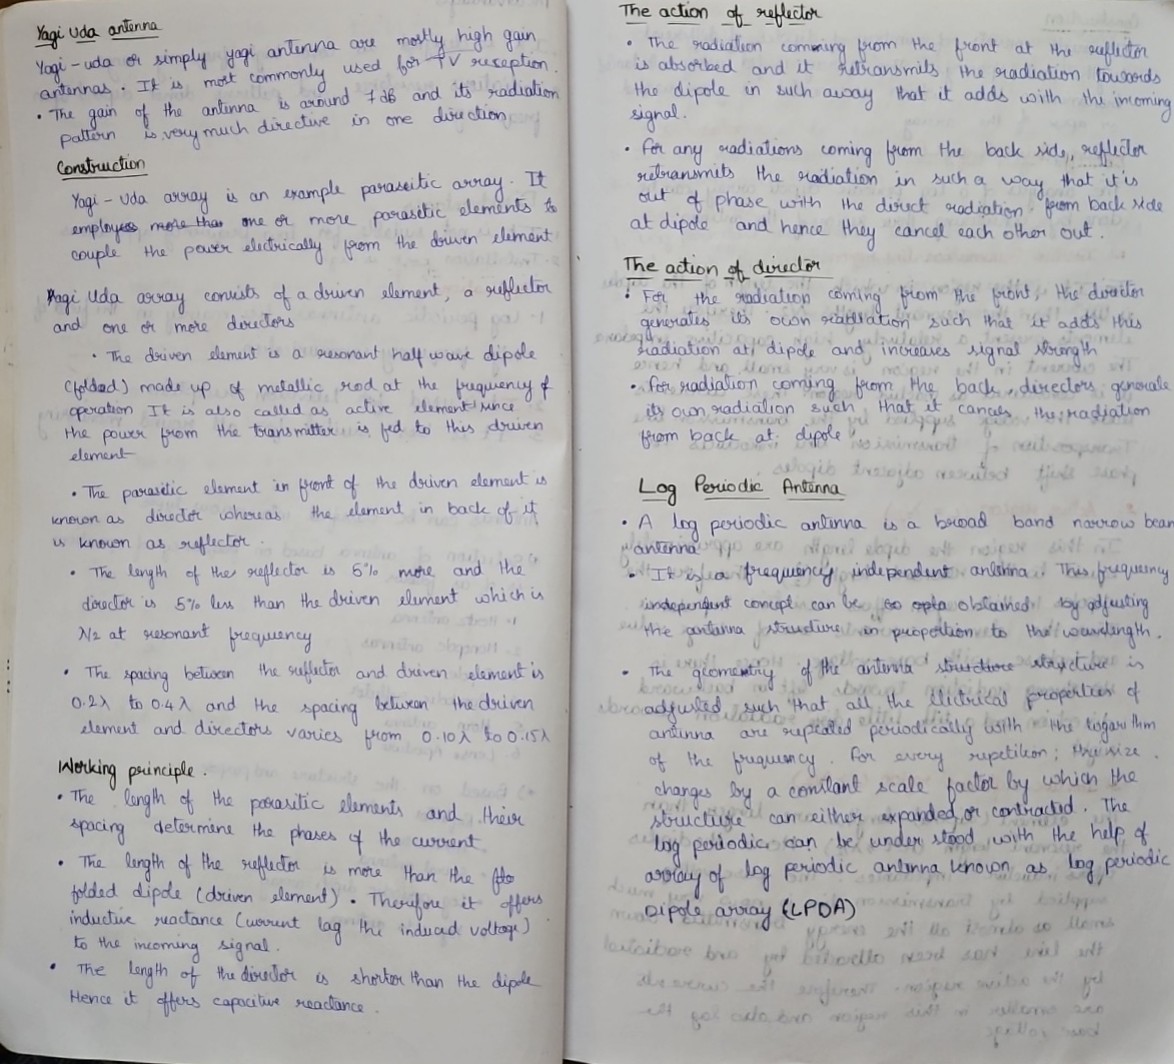 Yagi Uda antenna
Yagi-uda or simply yagi antenna are mostly high gain
antennas. It is most commonly used for TV reception.
• The gain of the antenna is around 7dB and its radiation
pattern is very much directive in one direction
Construction
Yagi-Uda array is an example paraseitic array. It
employes more than one or more parasitic elements to
couple the power electrically from the driven element
Yagi Uda array consists of a driven element, a reflector
and one or more directors
• The driven element is a resonant half wave dipole
(folded) made up of metallic rod at the frequency of
operation It is also called as active element since
the power from the transmitter is fed to this driven
element
• The parasitic element in front of the driven element is
known as director whereas the element in back of it
is known as reflector.
• The length of the reflector is 5% more and the
director is 5% less than the driven element which is
λ/2 at resonant frequency
• The spacing between the reflector and driven element is
0.2λ to 0.4λ and the spacing between the driven
element and directors varies from 0.10λ to 0.15λ
Working principle.
• The length of the parasitic elements and their
spacing determine the phases of the current
• The length of the reflector is more than the
folded dipole (driven element). Therefore it offers
inductive reactance (current lag the induced voltage)
to the incoming signal.
• The length of the director is shorter than the dipole
Hence it offers capacitive reactance.
The action of reflector
• The radiation comming from the front at the reflector
is absorbed and it retransmits the radiation towards
the dipole in such away that it adds with the incoming
signal.
• For any radiations coming from the back side, reflector
retransmits the radiation in such a way that it is
out of phase with the direct radiation from back side
at dipole and hence they cancel each other out.
The action of director
• For the radiation coming from the front, the director
generates its own radiation such that it adds this
radiation at dipole and increases signal strength
• For radiation coming from the back, directors generate
its own radiation such that it cances the radiation
from back at dipole
Log Periodic Antenna
• A log periodic antenna is a broad band narrow beam
antenna
• It is a frequency independent antenna. This frequency
independent concept can be so opta obtained by adjusting
the antanna structure in proportion to the wavelength.
• The geomentry of the antenna structure structure is
adjusted such that all the electrical properties of
antenna are repeated periodically with the logarithm
of the frequency. For every repetition; the size
changes by a constant scale factor by which the
structure can either expanded or contracted. The
log periodic can be under stood with the help of
array of log periodic antenna known as log periodic
Dipole array (LPDA)